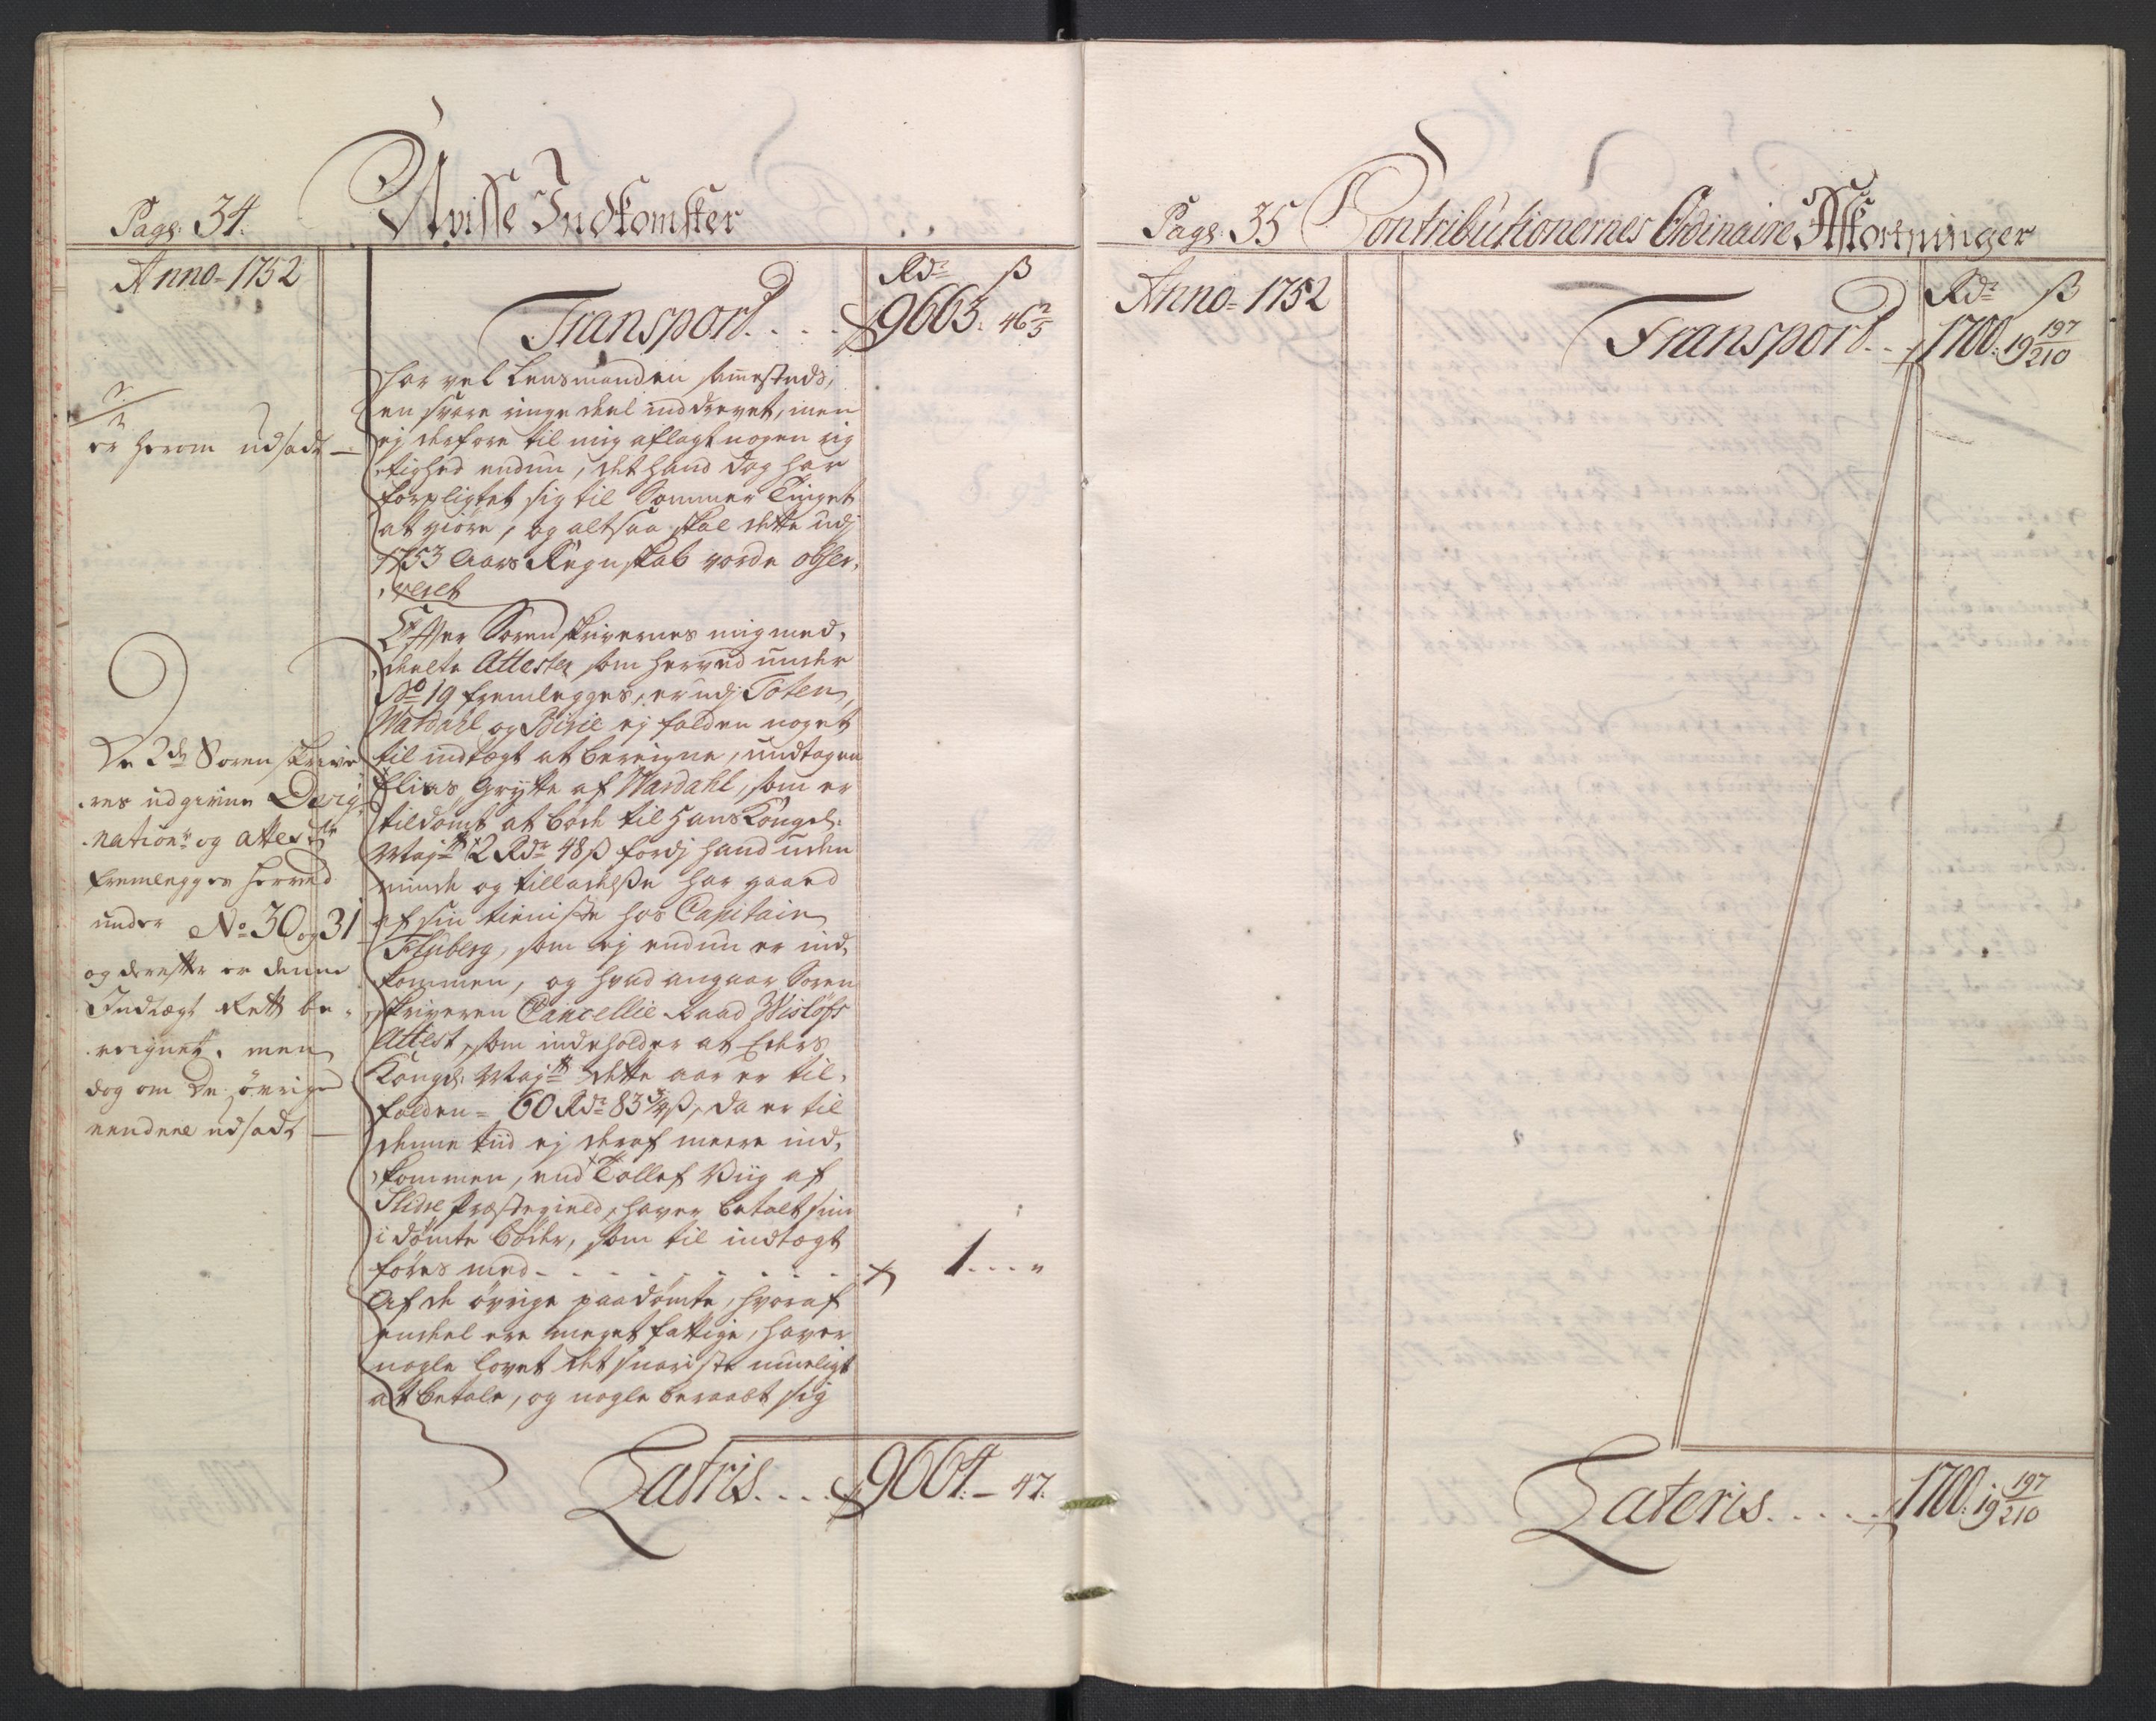 Pag: 34.
Uvisse Indkomster
Anno 1752
Rdr ß
Transport . . . . 9663. 46 2/5
har vel Lensmanden sammesteds,
en svare ringe deel inddrevet, men
ej derfore til mig aflagt nogen rig
tighed endnu, det hand dog har
forpligtet sig til Sommer Tinget
at giøre, og altsaa skal dette udj
1753 Aars Regnskab vorde obser,
veret
er herom udsadt —
Efter Sorenskrivernes mig med,
deelte Attester, som herved under
No 19 fremlegges, er udj Toten,
Wardahl og Birie ej falden noget
til indtægt at bereigne, undtagen
Elias Grytte af Wardahl, som er
tildømt at bøde til Hans Kongel:
Majts 2 Rdr 48 ß fordj hand uden
minde og tilladelße har gaaed
af sin tieniste hos Capitain
Fluberg, som ej endnu er ind,
kommen, og hvad angaar Soren
skriveren Cancellie Raad Wisløfs
Attest, som indeholder at Eders
Kongel: Majts dette aar er til,
falden = 60 Rdr 83 3/4 ß, da er til
denne tiid ej deraf meere ind,
kommen, end Tollef Viig af
Slidre Præstegield, haver betalt sin
idømte bøder, som til indtægt
føres med . . . . . . . . . 1 . . . "
Af de øvrige paadømte, hvoraf
endeel ere meget fattige, haver
nogle lovet det snariste mueligt
at betale, og nogle beraabt sig
De 2de Sorenskrive
res udgivne Desig
nation og atteste
fremlegges herved
under No 30 og 31
og derefter er denne
Indtægt Rett be,
reignet, men
dog om De øvrige
endeel udsadt —
Latris. . . . 9664. — 47.
Pag: 35 Contributionernes Ordinaire Afkortninger
Anno 1752
Rdr ß
Transport . . . 1700. 19 197/210
Lateris . . . . . 1700. 19 197/210